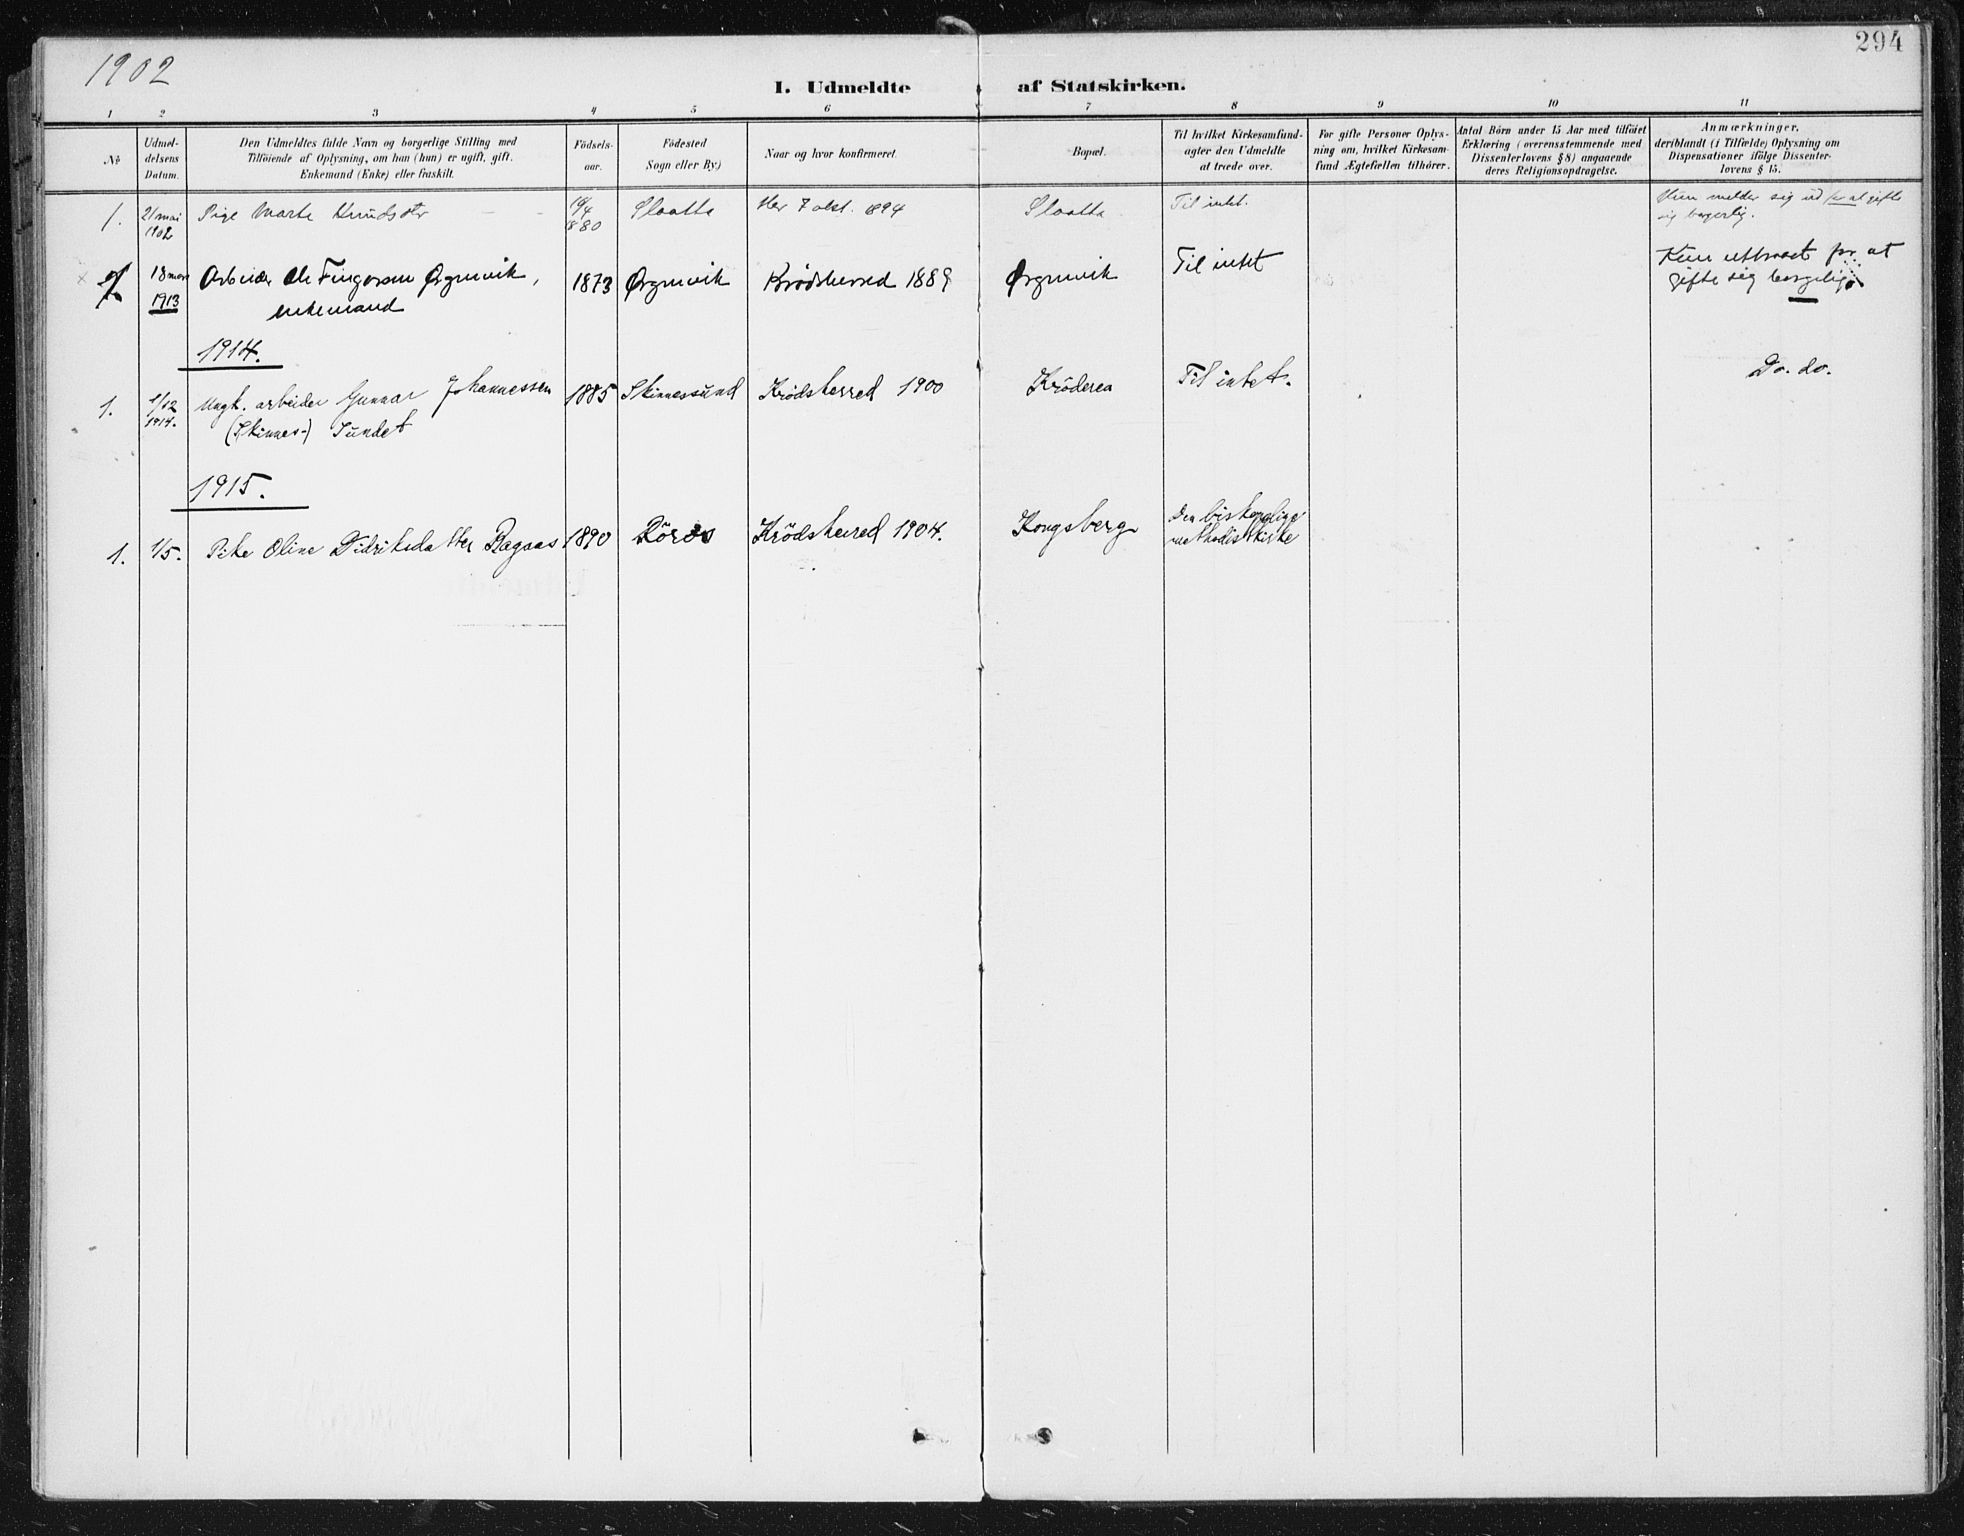 294
1902
I. Udmeldte af Statskirken.
1 2 3 4 5 6 7 8 9 10 11
No
Udmel-
delsens
Datum.
Den Udmeldtes fulde Navn og borgerlige Stilling med
Tilföiende af Oplysning, om han (hun) er ugift, gift,
Enkemand (Enke) eller fraskilt.
Födsels-
aar.
Födested
Sogn eller By.)
Naar og hvor konfirmeret.
Bopæl.
Til hvilket Kirkesamfund-
agter den Udmeldte
at træde over.
For gifte Personer Oplys-
ning om, hvilket Kirkesam-
fund Ægtefællen tilhörer.
Antal Börn under 15 Aar med tilföiet
Erklæring (overensstemmende med
Dissenterlovens § 8) angaaende
deres Religionsopdragelse.
Anmærkninger,
deriblandt (i Tilfælde) Oplysning om
Dispensationer ifölge Dissenter-
lovens § 15.
1. 21 mai 1902 Pige Marte Knudsdtr 1880 Slaatta Her 7 okt. 1894 Slaatta Til intet. Hun melder sig ud for at gifte
sig borgerlig.
18 mars 1913 Arbeider Ole Fingarsen Ørgenvik, 1873 Ørgenvik Krødsherred 1889 Ørgenvik Til intet Kun uttraadt for at
enkemand gifte sig borgerlig.
1914.
1. 1/12 1914. Ungk. arbeider Gunnar Johannessen 1885 Skinnessund Krödsherred 1900 Kröderen Til intet. Do. do.
(Skinnes-) Sundet
1915.
1. 1/5. Pike Oline Didriksdatter Bagaas 1890 Röros Krödsherred 1904. Kongsberg Den biskopelige
methodistkirke